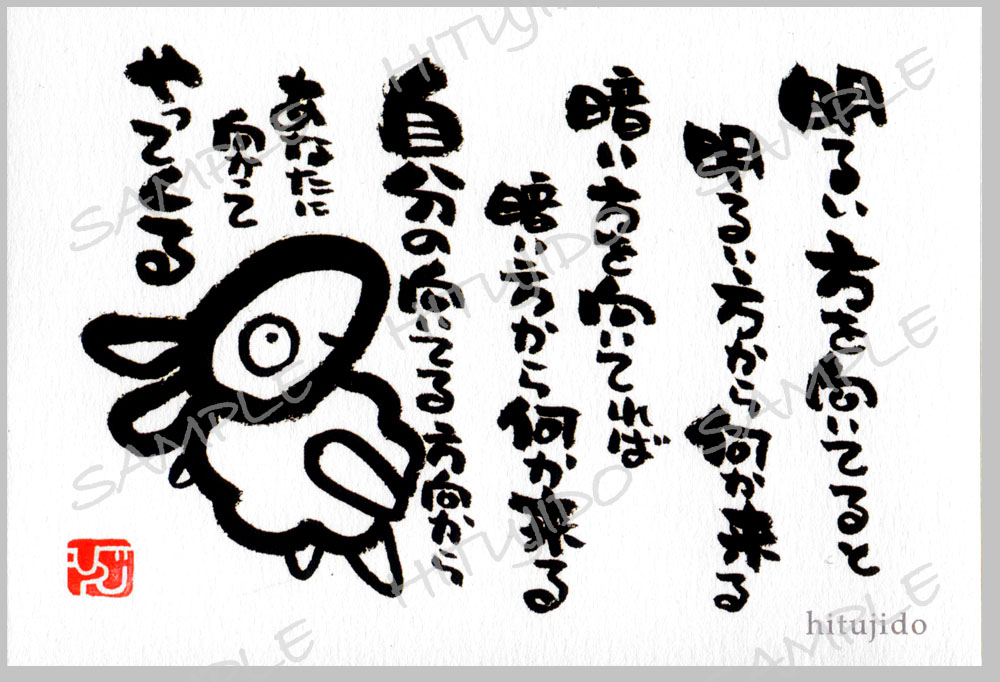 明るい方を向いてると
明るい方から何か来る
暗い方を向いてれば
暗い方から何か来る
自分の向いてる方向から
あなたに
向かって
やってくる
ひつじ
hitujido
SAMPLE HITUJIDO